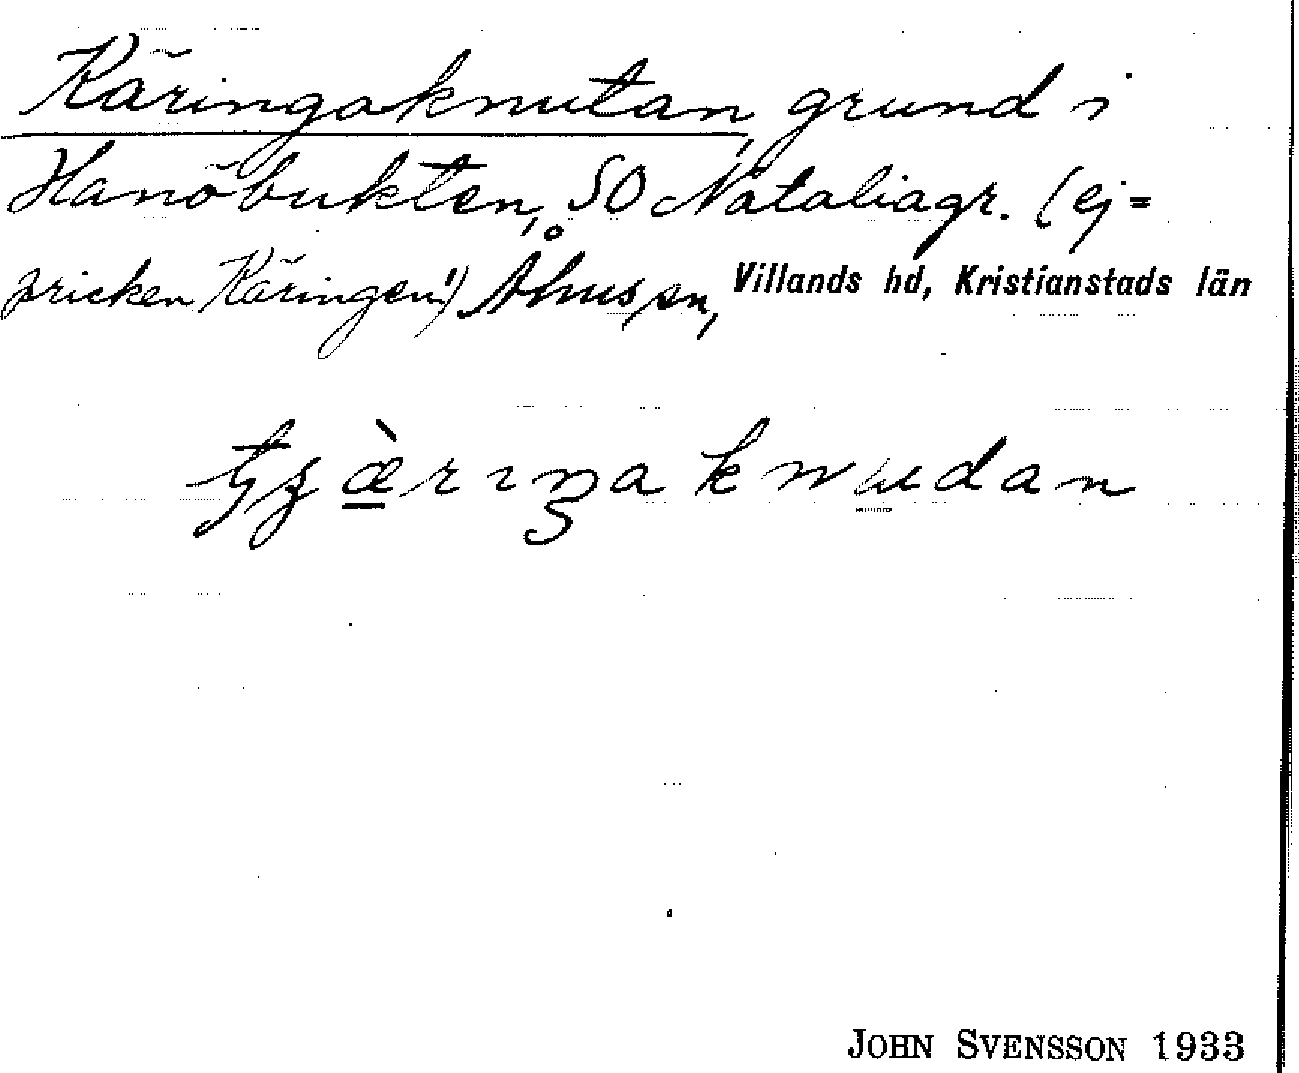 Käringaknutan, grund i
Hanöbukten, SO Nataliagr. (ej =
pricken Käringen!) Åhus sn, Villands hd, Kristianstads län
JOHN SVENSSON 1933